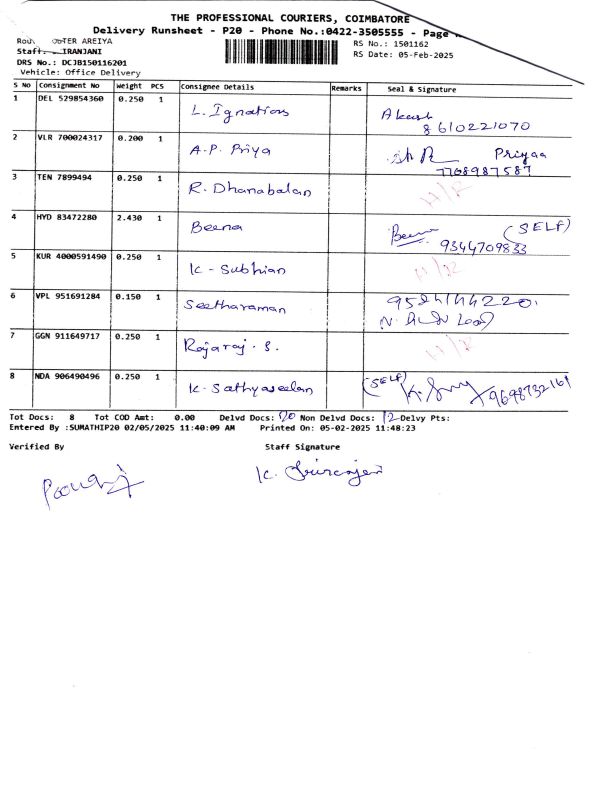 THE PROFESSIONAL COURIERS, COIMBATORE
Delivery Runsheet - P20 - Phone No.:0422-3505555 - Page
AREIYA
RS No.: 1501162
Staff: IRANJANI
RS Date: 05-Feb-2025
DRS No.: DCJB150116201
Vehicle: Office Delivery
S No Consignment No Weight PCS Consignee Details Remarks Seal & Signature
1 DEL 529854360 0.250 1 L. Ignatious Akash
8610221070
2 VLR 700024317 0.200 1 A.P. Priya Priyaa
7708987587
3 TEN 7899494 0.250 1 R. Dhanabalan
4 HYD 83472280 2.430 1 Beena (SELF)
9344709833
5 KUR 4000591490 0.250 1 K - Subhian
6 VPL 951691284 0.150 1 Seetharaman
7 GGN 911649717 0.250 1 Rajaraj. S.
8 NDA 906490496 0.250 1 K. Sathyaseelan (SELF) 9698732161
Tot Docs: 8 Tot COD Amt: 0.00 Delvd Docs: Non Delvd Docs: Delvy Pts:
Entered By :SUMATHIP20 02/05/2025 11:40:09 AM Printed On: 05-02-2025 11:48:23
Verified By Staff Signature